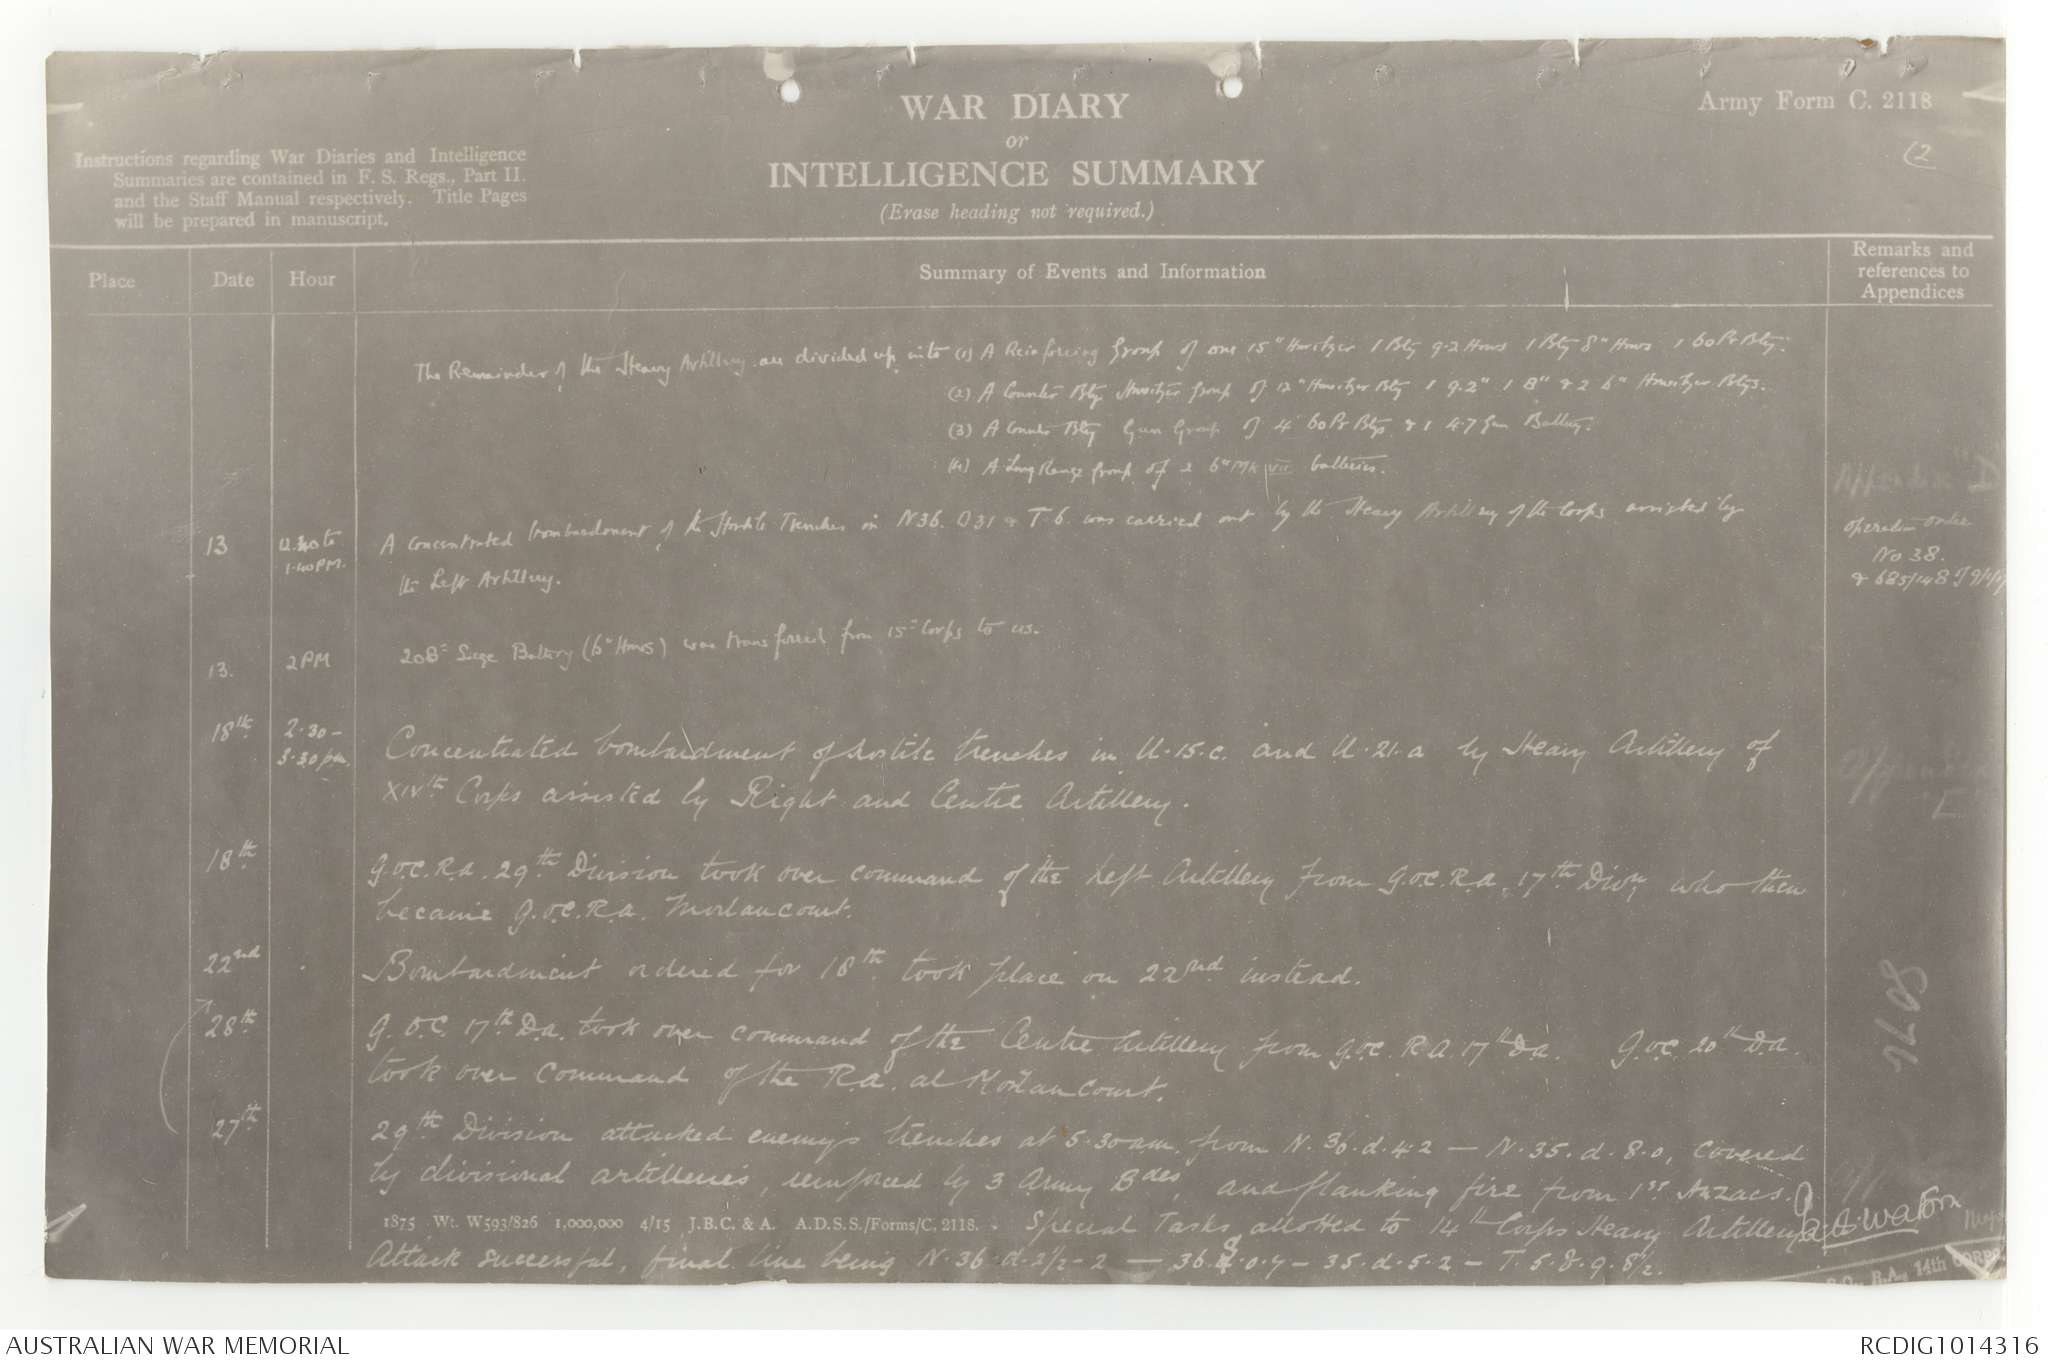 WAR DIARY
or
INTELLIGENCE SUMMARY
(Erase heading not required.)
Army Form C. 2118
(2
Instructions regarding War Diaries and Intelligence
Summaries are contained in F. S. Regs., Part II.
and the Staff Manual respectively. Title Pages
will be prepared in manuscript.
Place Date Hour Summary of Events and Information Remarks and references to Appendices
The Remainder of the Heavy Artillery are divided up into (1) A Reinforcing Group of one 15" Howitzer 1 Bty 9.2 Hows 1 Bty 8" Hows 1 60 Pr Bty.
(2) A Counter Bty Howitzer group of 12" Howitzer Bty 1 9.2" 1 8" & 2 6" Howitzer Btys.
(3) A Counter Bty Gun Group of 4 60 Pr Btys & 1 4.7 Gun Battery.
(4) A Long Range Group of 2 6" Mk VII batteries.
Appendix "D"
13 12.40 to 1.40 PM. A concentrated bombardment of the Hostile Trenches in N36. O31 & T.6. was carried out by the Heavy Artillery of the Corps assisted by
the Left Artillery.
operation order
No 38.
& 685/148 of 9/1/17
13. 2 PM 208th Siege Battery (6" Hows) was transferred from 15th Corps to us.
18th 2.30 - 3.30 pm. Concentrated bombardment of hostile trenches in U.15.c. and U.21.a by Heavy Artillery of
XIVth Corps assisted by Right and Centre Artillery.
Appendix
E
18th G.O.C.R.A. 29th Division took over command of the Left Artillery from G.O.C.R.A. 17th Divn, who then
became G.O.C.R.A. Morlancourt.
22nd Bombardment ordered for 18th took place on 22nd instead.
28th G.O.C. 17th D.A. took over command of the Centre Artillery from G.O.C. R.A. 17th D.A. G.O.C. 20th D.A.
took over command of the R.A. at Morlancourt.
27th 29th Division attacked enemy's trenches at 5.30 a.m. from N.36.d.4.2 — N.35.d.8.0, covered
by divisional artilleries, reinforced by 3 Army Bdes, and flanking fire from 1st Anzacs.
1875 Wt. W593/826 1,000,000 4/15 J.B.C. & A. A.D.S.S./Forms/C. 2118.
Special Tasks allotted to 14th Corps Heavy Artillery
Attack successful, final line being N.36.d.2½-2 — 36. .0.4 — 35.d.5.2 — T.5.8.9.8½.
R.A., 14th CORPS
AUSTRALIAN WAR MEMORIAL
RCDIG1014316